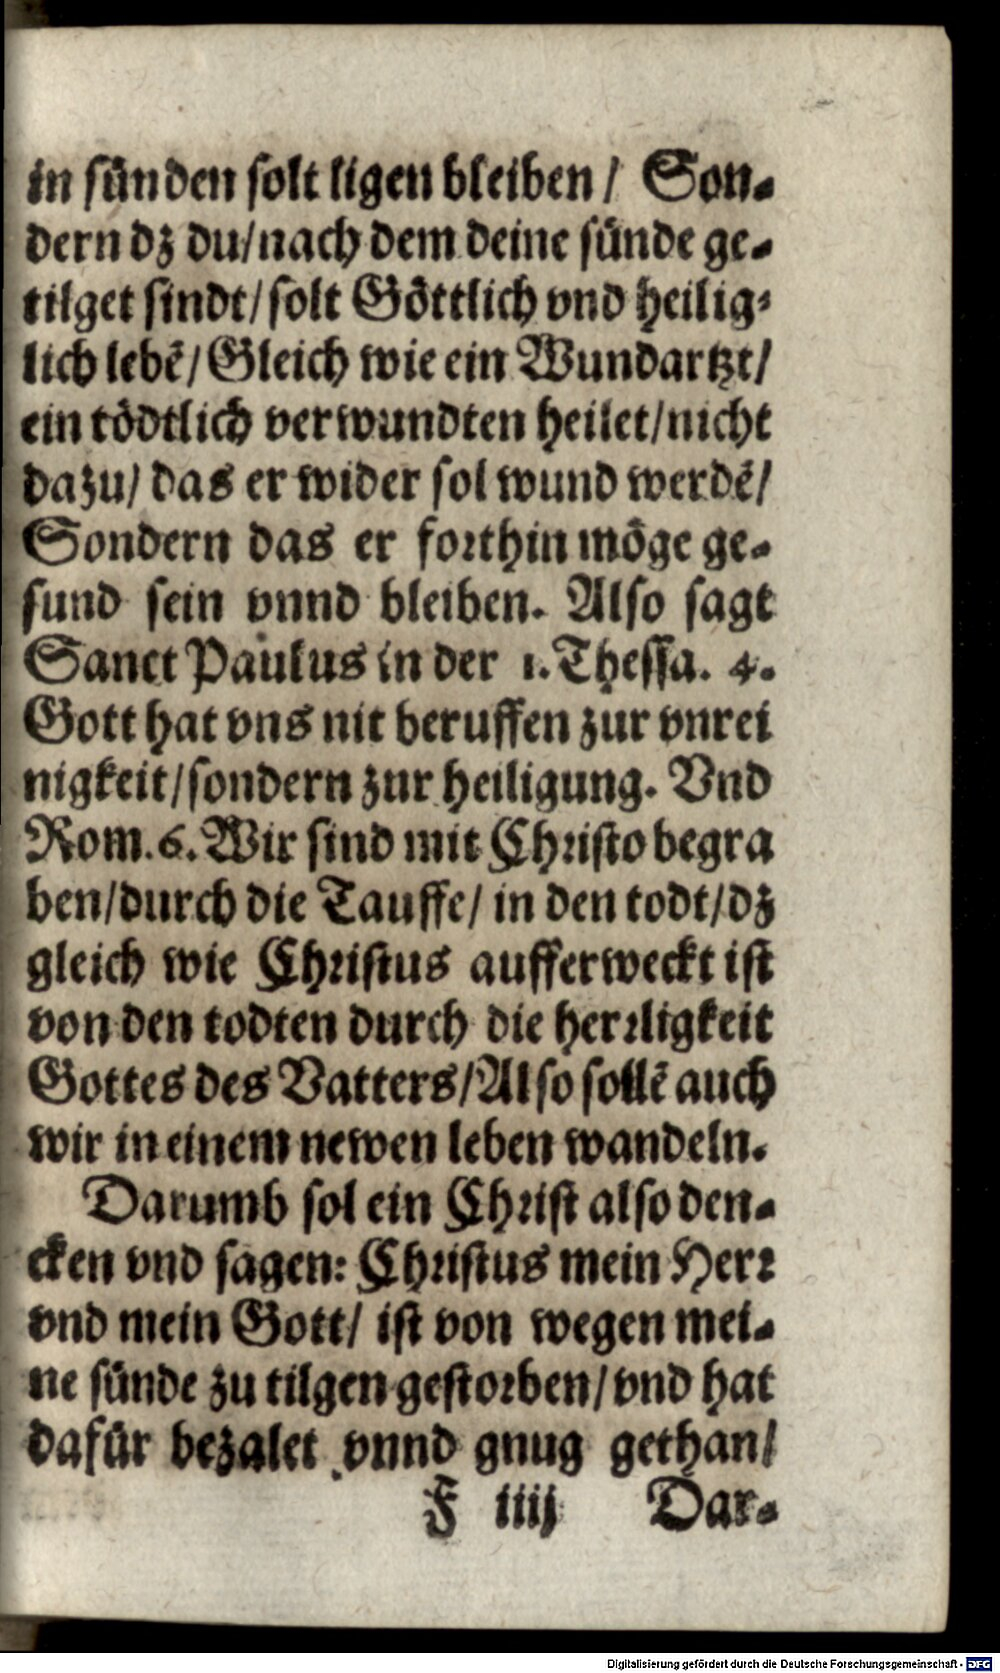 in sünden solt ligen bleiben / Son-
dern dz du/nach dem deine sünde ge-
tilget sindt/solt Göttlich vnd heilig-
lich lebẽ/Gleich wie ein Wundartzt/
ein tödtlich verwundten heilet/nicht
dazu/ das er wider sol wund werdẽ/
Sondern das er forthin möge ge-
sund sein vnnd bleiben. Also sagt
Sanct Paulus in der 1. Thessa. 4.
Gott hat vns nit beruffen zur vnrei
nigkeit/sondern zur heiligung. Vnd
Rom. 6. Wir sind mit Christo begra
ben/durch die Tauffe/ in den todt/dz
gleich wie Christus aufferweckt ist
von den todten durch die herrligkeit
Gottes des Vatters/Also sollẽ auch
wir in einem newen leben wandeln.
Darumb sol ein Christ also den-
cken vnd sagen: Christus mein Herr
vnd mein Gott/ ist von wegen mei-
ne sünde zu tilgen gestorben/vnd hat
dafür bezalet vnnd gnug gethan/
F iiij Dar-
Digitalisierung gefördert durch die Deutsche Forschungsgemeinschaft - DFG